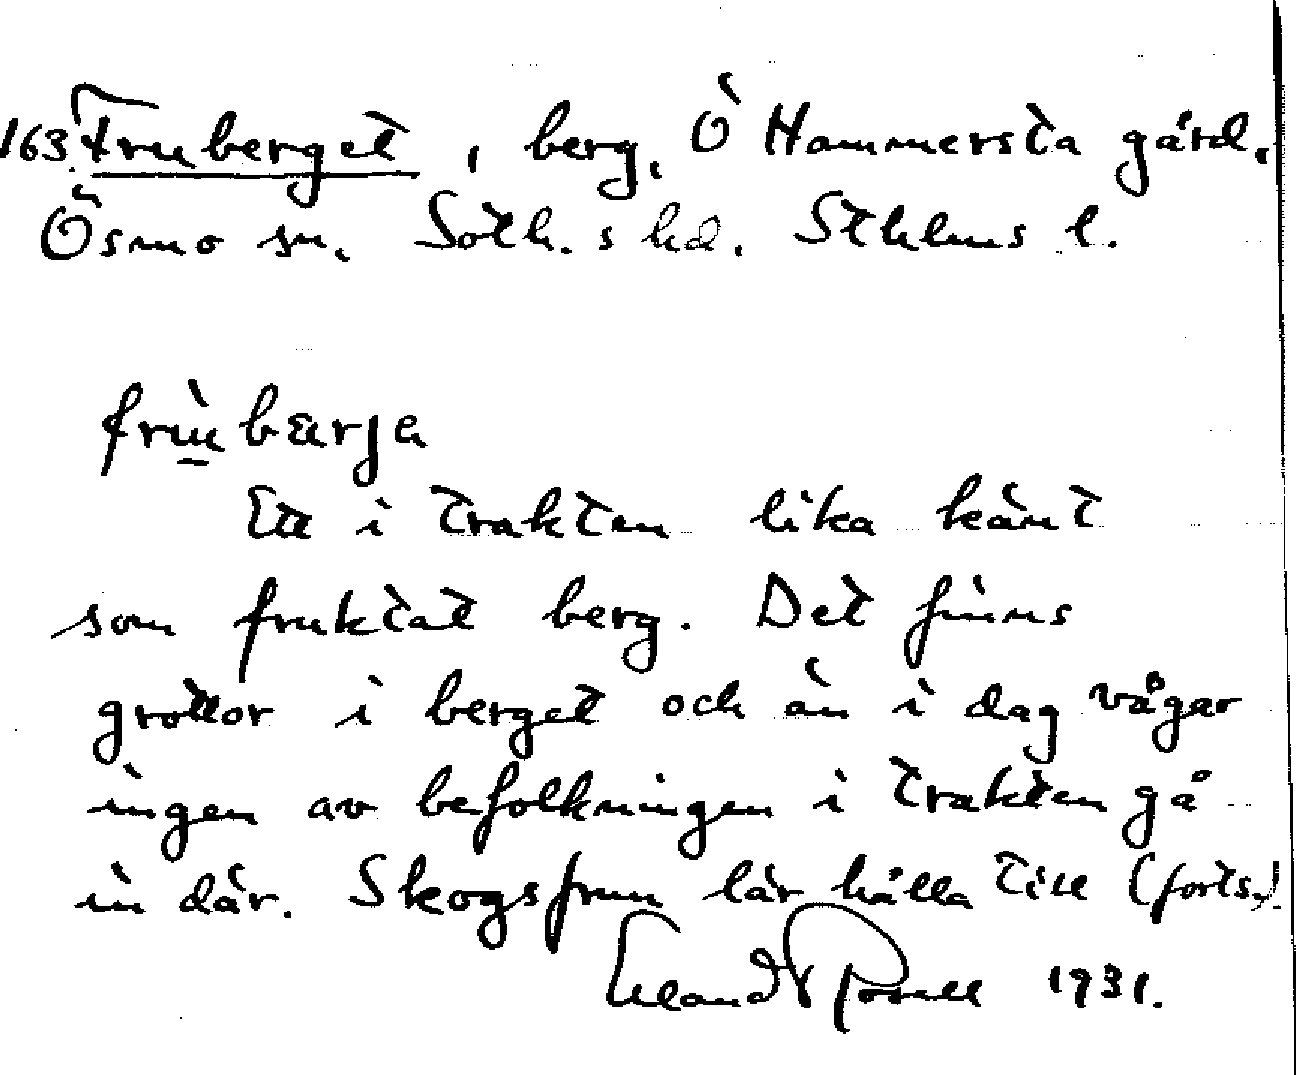 163. Fruberget, berg, Ö Hammersta gård,
Ösmo sn. Soth. s hd. Sthlms l.
frùbærja
Ett i trakten lika känt
som fruktat berg. Det finns
grottor i berget och än i dag vågar
ingen av befolkningen i trakten gå
in där. Skogsfrun lär hålla till (forts.)
Erland Rosell 1931.